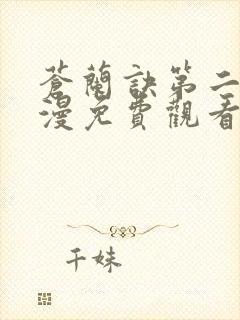 蒼蘭訣第二
漫免費觀看
千妹